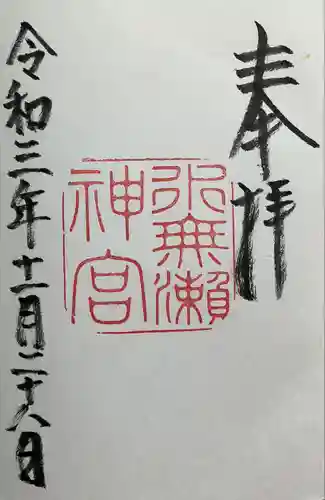 奉拝
水無瀬
神宮
令和三年十一月二十八日